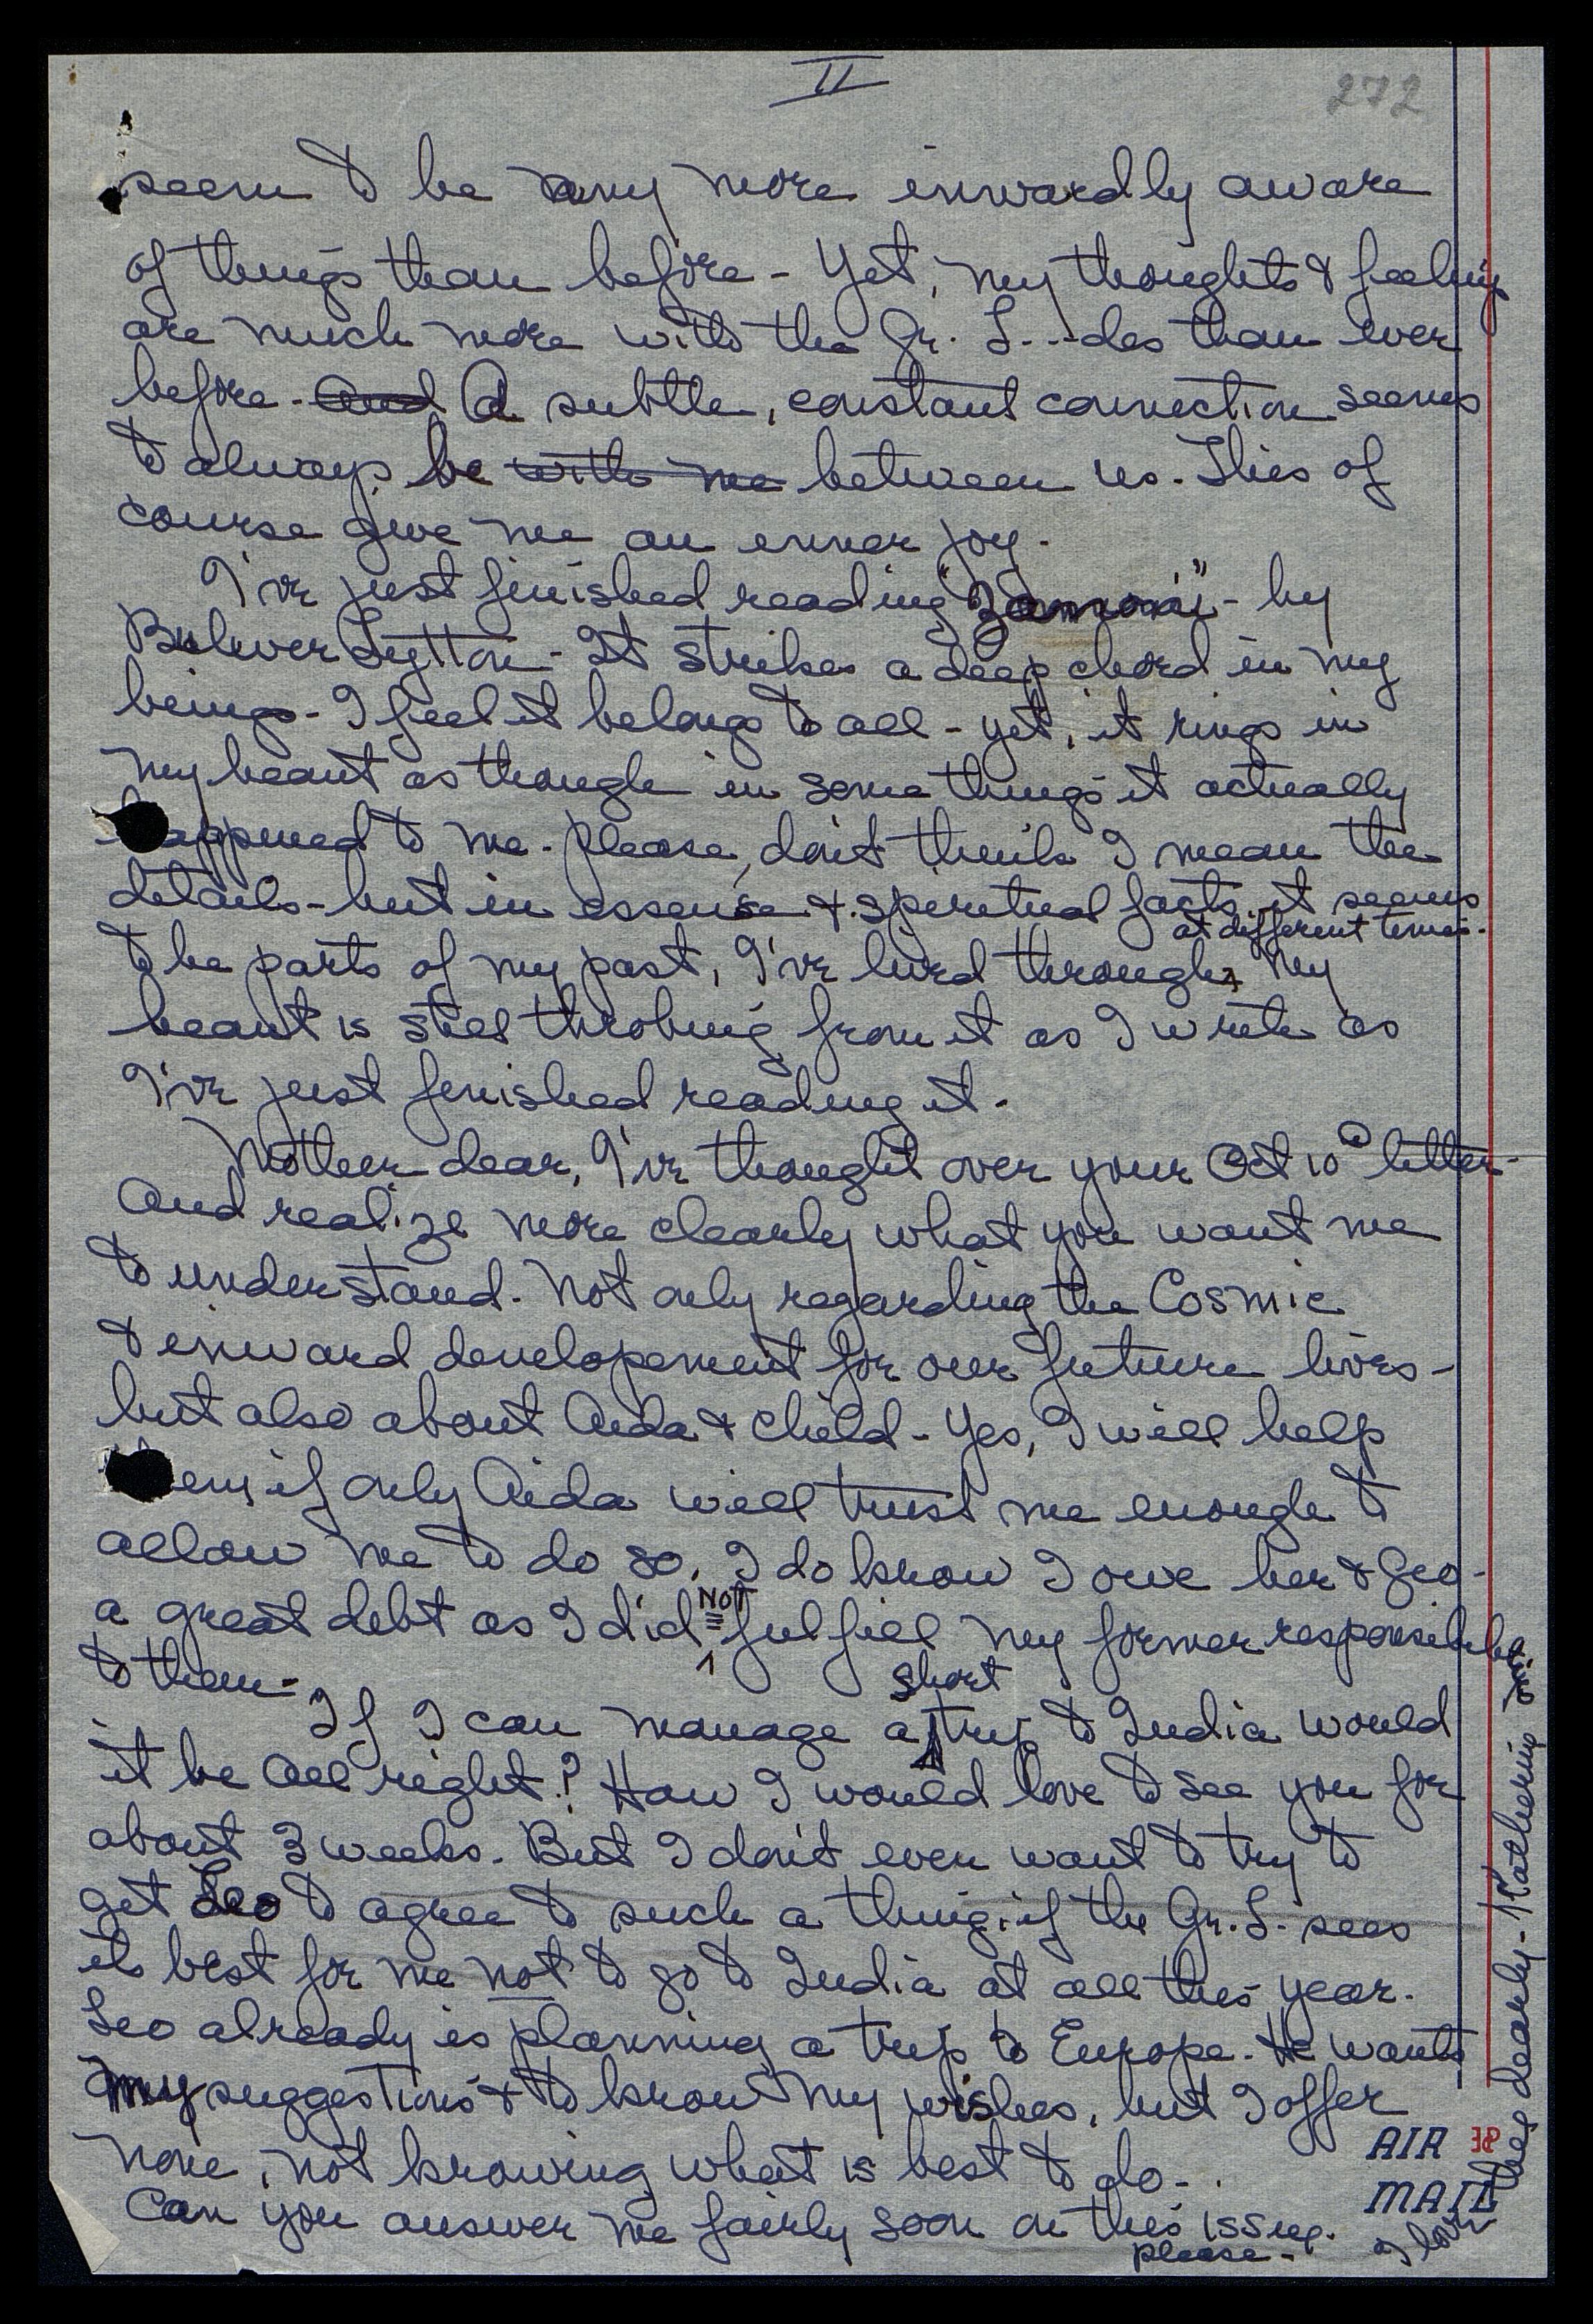 II
272
seem to be any more inwardly aware
of things than before - Yet, my thoughts & feelings
are much more with the Gr. L...des than ever
before - and A subtle, constant connection seems
to always be with me between us. This of
course give me an inner joy.
I've just finished reading "Zanoni" - by
Bulwer Lytton - It strikes a deep chord in my
beings - I feel it belongs to all - yet, it rings in
my heart as though in some things it actually
happened to me. Please, don't think I mean the
details - but in essence & spiritual facts it seems
to be parts of my past, I've lived through at different times. My
heart is still throbing from it as I write as
I've just finished reading it.
Mother dear, I've thought over your Oct 10th letter -
and realize more clearly what you want me
to understand. Not only regarding the Cosmic
& inward developement for our future lives -
but also about Aida & child - Yes, I will help
them, if only Aida will trust me enough to
allow me to do so. I do know I owe her & Geo.
a great debt as I did NOT fulfill my former
to them -
If I can manage a short trip to India would
it be all right? How I would love to see you for
about 3 weeks. But I don't even want to try to
get Leo to agree to such a thing if the Gr. L. sees
it best for me not to go to India at all this year.
Leo already is planning a trip to Europe. He wants
my suggestions & to know my wishes, but I offer
none, not knowing what is best to do -
Can you answer me fairly soon on this issue.
please -
AIR
MAIL
I love thee dearly - Katherine